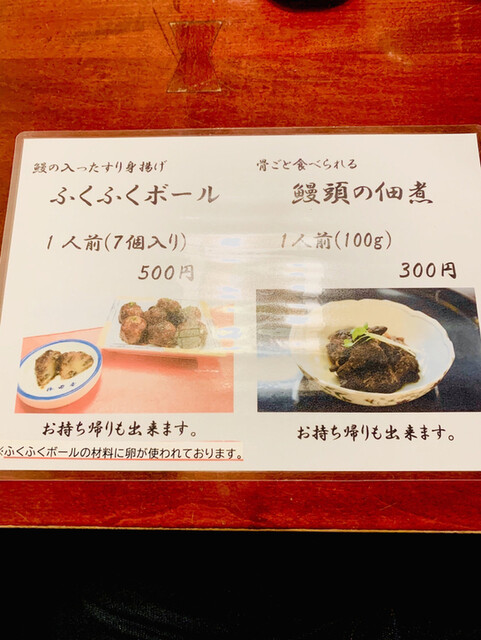 鰻の入ったすり身揚げ
ふくふくボール
1人前(7個入り)
500円
お持ち帰りも出来ます。
※ふくふくボールの材料に卵が使われております。
骨ごと食べられる
鰻頭の佃煮
1人前(100g)
300円
お持ち帰りも出来ます。